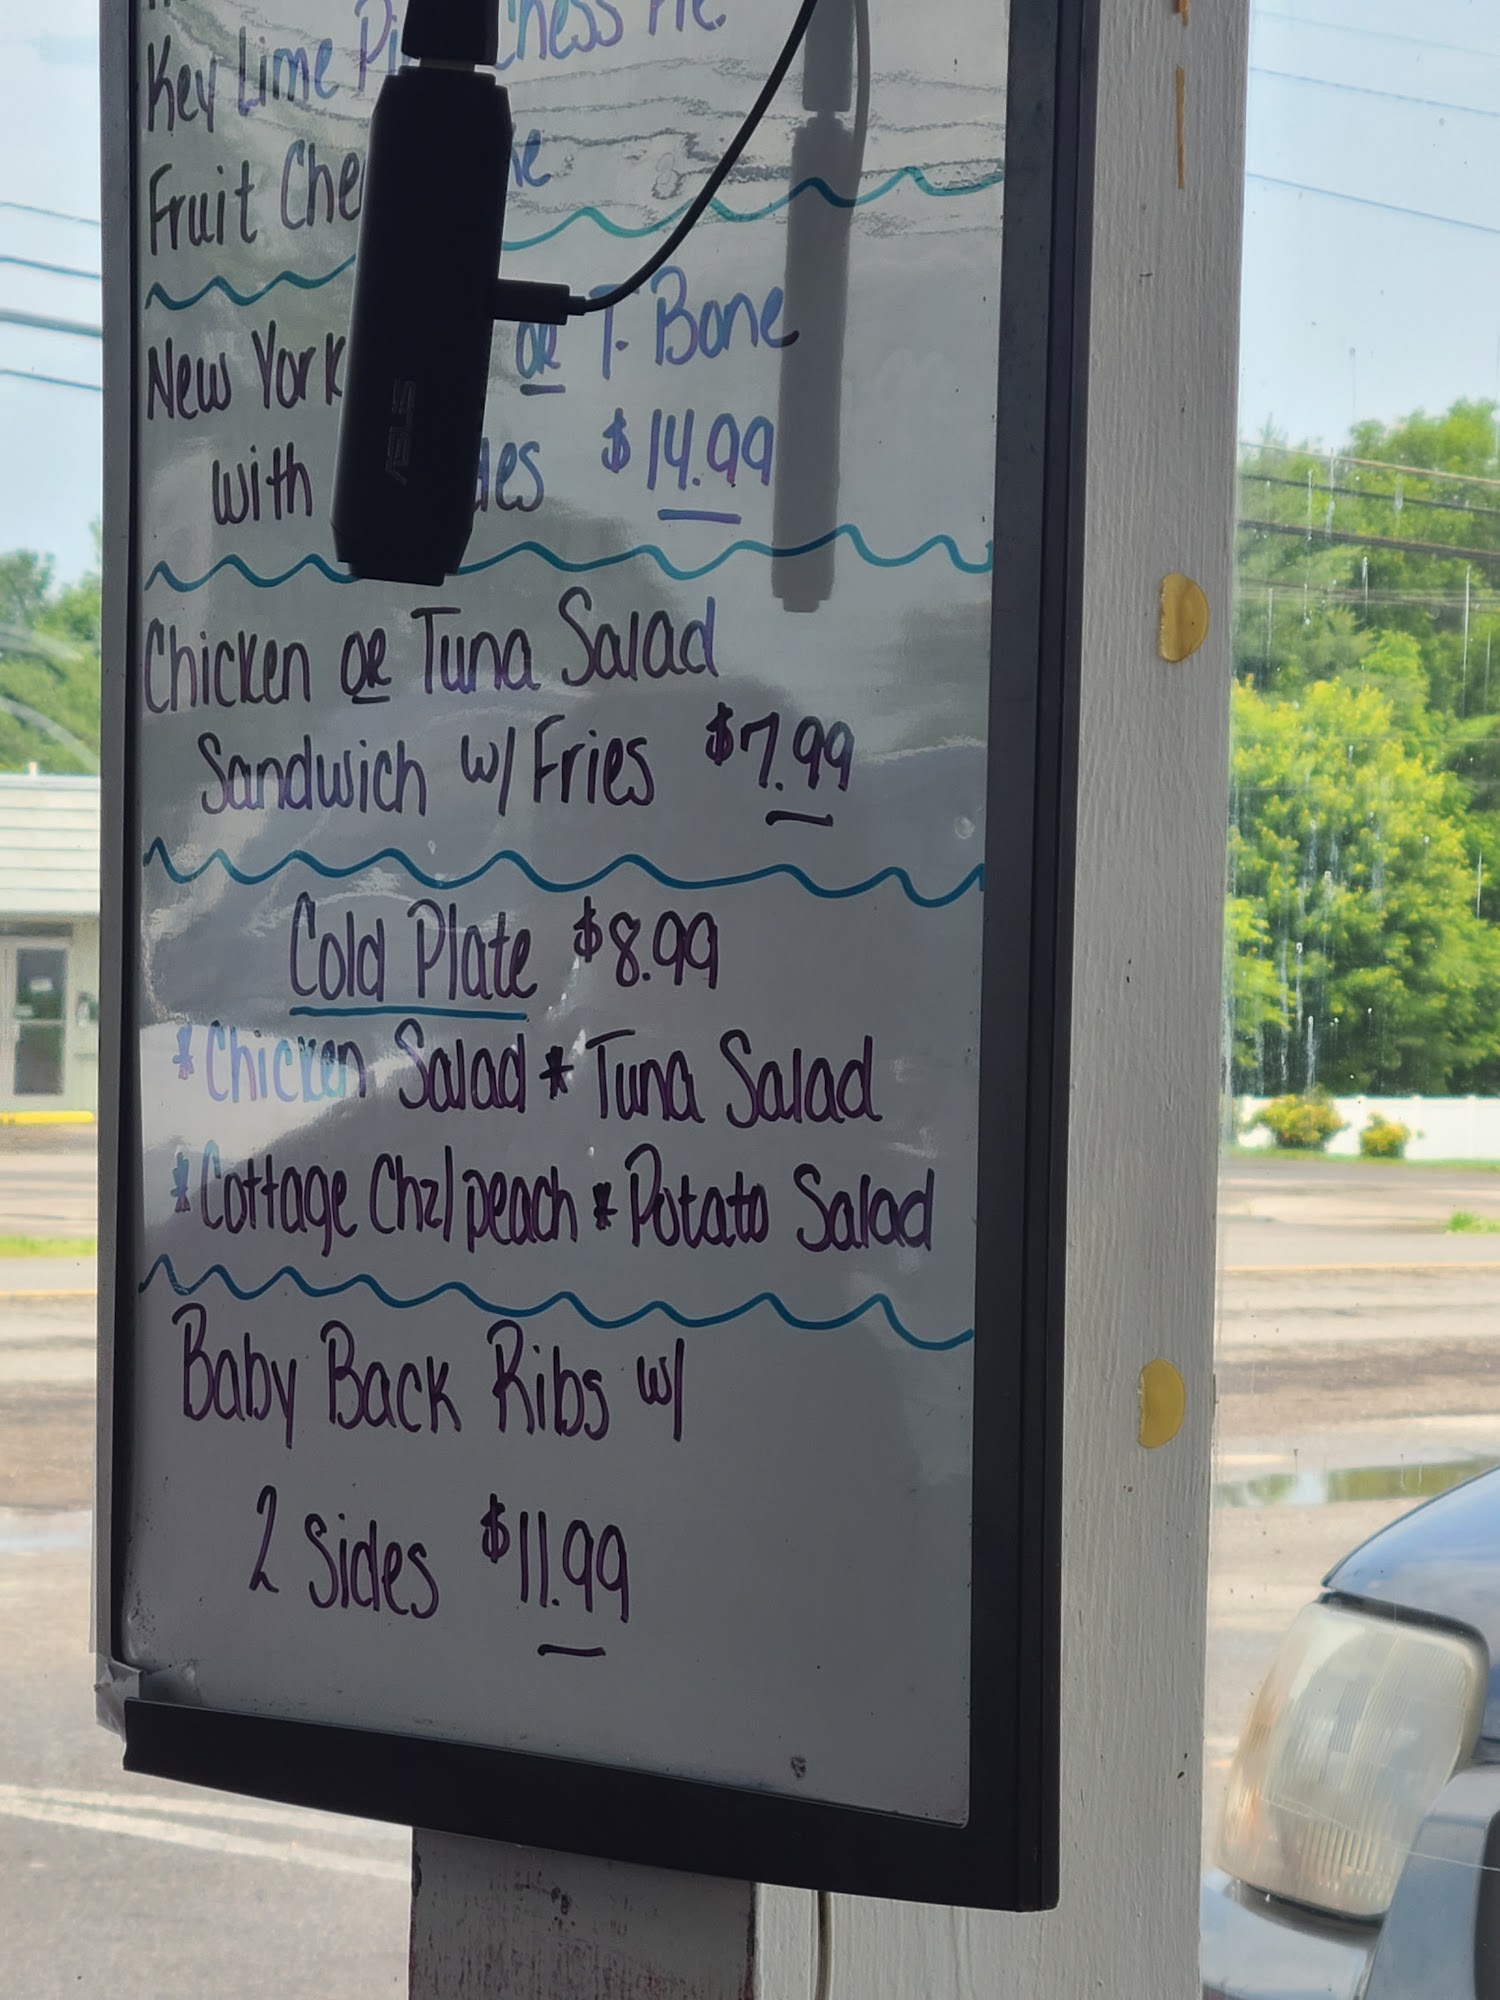 Key Lime Pie Chess Pie
Fruit Che
New York or T-Bone
with $14.99
ASUS
Chicken or Tuna Salad
Sandwich w/ Fries $7.99
Cold Plate $8.99
*Chicken Salad * Tuna Salad
*Cottage Chz/peach * Potato Salad
Baby Back Ribs w/
2 Sides $11.99